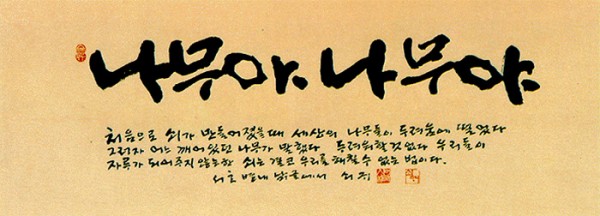 나무야. 나무야
처음으로 쇠가 만들어졌을 때 세상의 나무들이 두려움에 떨었다
그러자 어느 깨어있던 나무가 말했다 두려워할 것 없다 우리들이
자루가 되어주지 않는 한 쇠는 결코 우리를 해칠 수 없는 법이다.
쇠귀